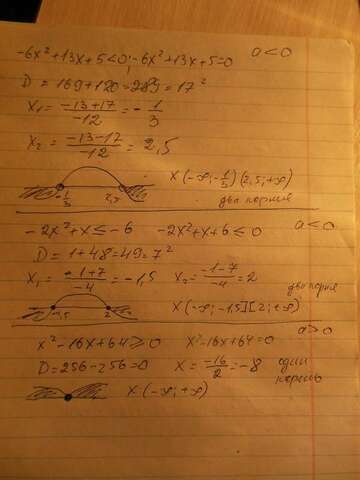 -6x²+13x+5<0; -6x²+13x+5=0 a<0
D = 169+120=289=17²
x₁= (-13+17)/(-12) = -1/3
x₂= (-13-17)/(-12) = 2,5
-1/3 2,5 x(-∞;-1/3)(2,5;+∞)
два корня
-2x²+x≤-6 -2x²+x+6≤0 a<0
D=1+48=49=7²
x₁= (-1+7)/(-4) = -1,5 x₂= (-1-7)/(-4) = 2 два корня
-1,5 2 x(-∞;-1,5][2;+∞)
a>0
x²-16x+64≥0 x²-16x+64=0
D=256-256=0 x= (-16)/2 = -8 один корень
x(-∞;+∞)